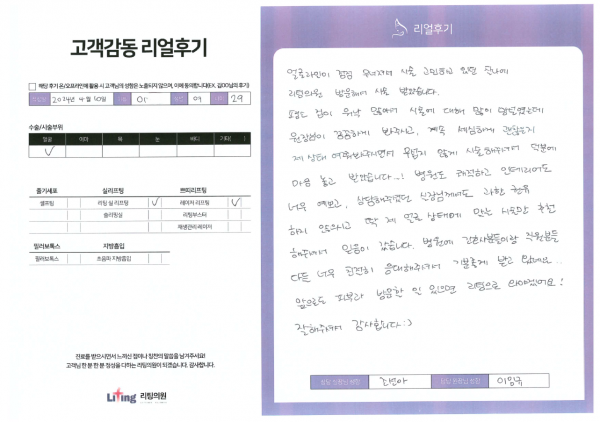 고객감동 리얼후기
해당 후기 온/오프라인에 활용 시 고객님의 성함은 노출되지 않으며, 이에 동의합니다(EX. 김OO님의 후기)
2024년 4월 10일 이 여 29
수술/시술부위
얼굴 이마 목 눈 바디 기타( )
줄기세포 실리프팅 쁘띠리프팅
셀르링 리팅 실 리프팅 레이저 리프팅
울리팅실 리팅부스터
재생관리레이저
필러보톡스 지방흡입
필러보톡스 초음파 지방흡입
진료를 받으시면서 느끼신 점이나 칭찬의 말씀을 남겨주세요!
고객님 한 분 한 분 정성을 다하는 리팅의원이 되겠습니다. 감사합니다.
Liting 리팅의원
리얼후기
얼굴라인이 점점 무너져서 시술 고민하고 있던 찰나에
리팅의원 방문해서 시술 받았습니다.
겁도 많이 시술에 대해 많이 망설였는데
원장님이 꼼꼼하게 봐주시고, 계속 세심하게 괜찮은지
제 상태 여쭤봐주시면서 무섭지 않게 시술해주셔서 덕분에
마음 놓고 받았습니다...! 병원도 쾌적하고 인테리어도
너무 예쁘고, 상담해주셨던 실장님께서도 과한 권유
하지 않으시고 딱 제 얼굴 상태에 맞는 시술만 추천
해주셔서 믿음이 갔습니다. 병원에 간호사분들이랑 직원분들
다들 너무 친절히 응대해주셔서 기분좋게 받고 왔네요..
앞으로도 피부과 방문할 일 있으면 리팅으로 와야겠어요!
잘해주셔서 감사합니다 :)
담당 실장님 성함 담당 원장님 성함